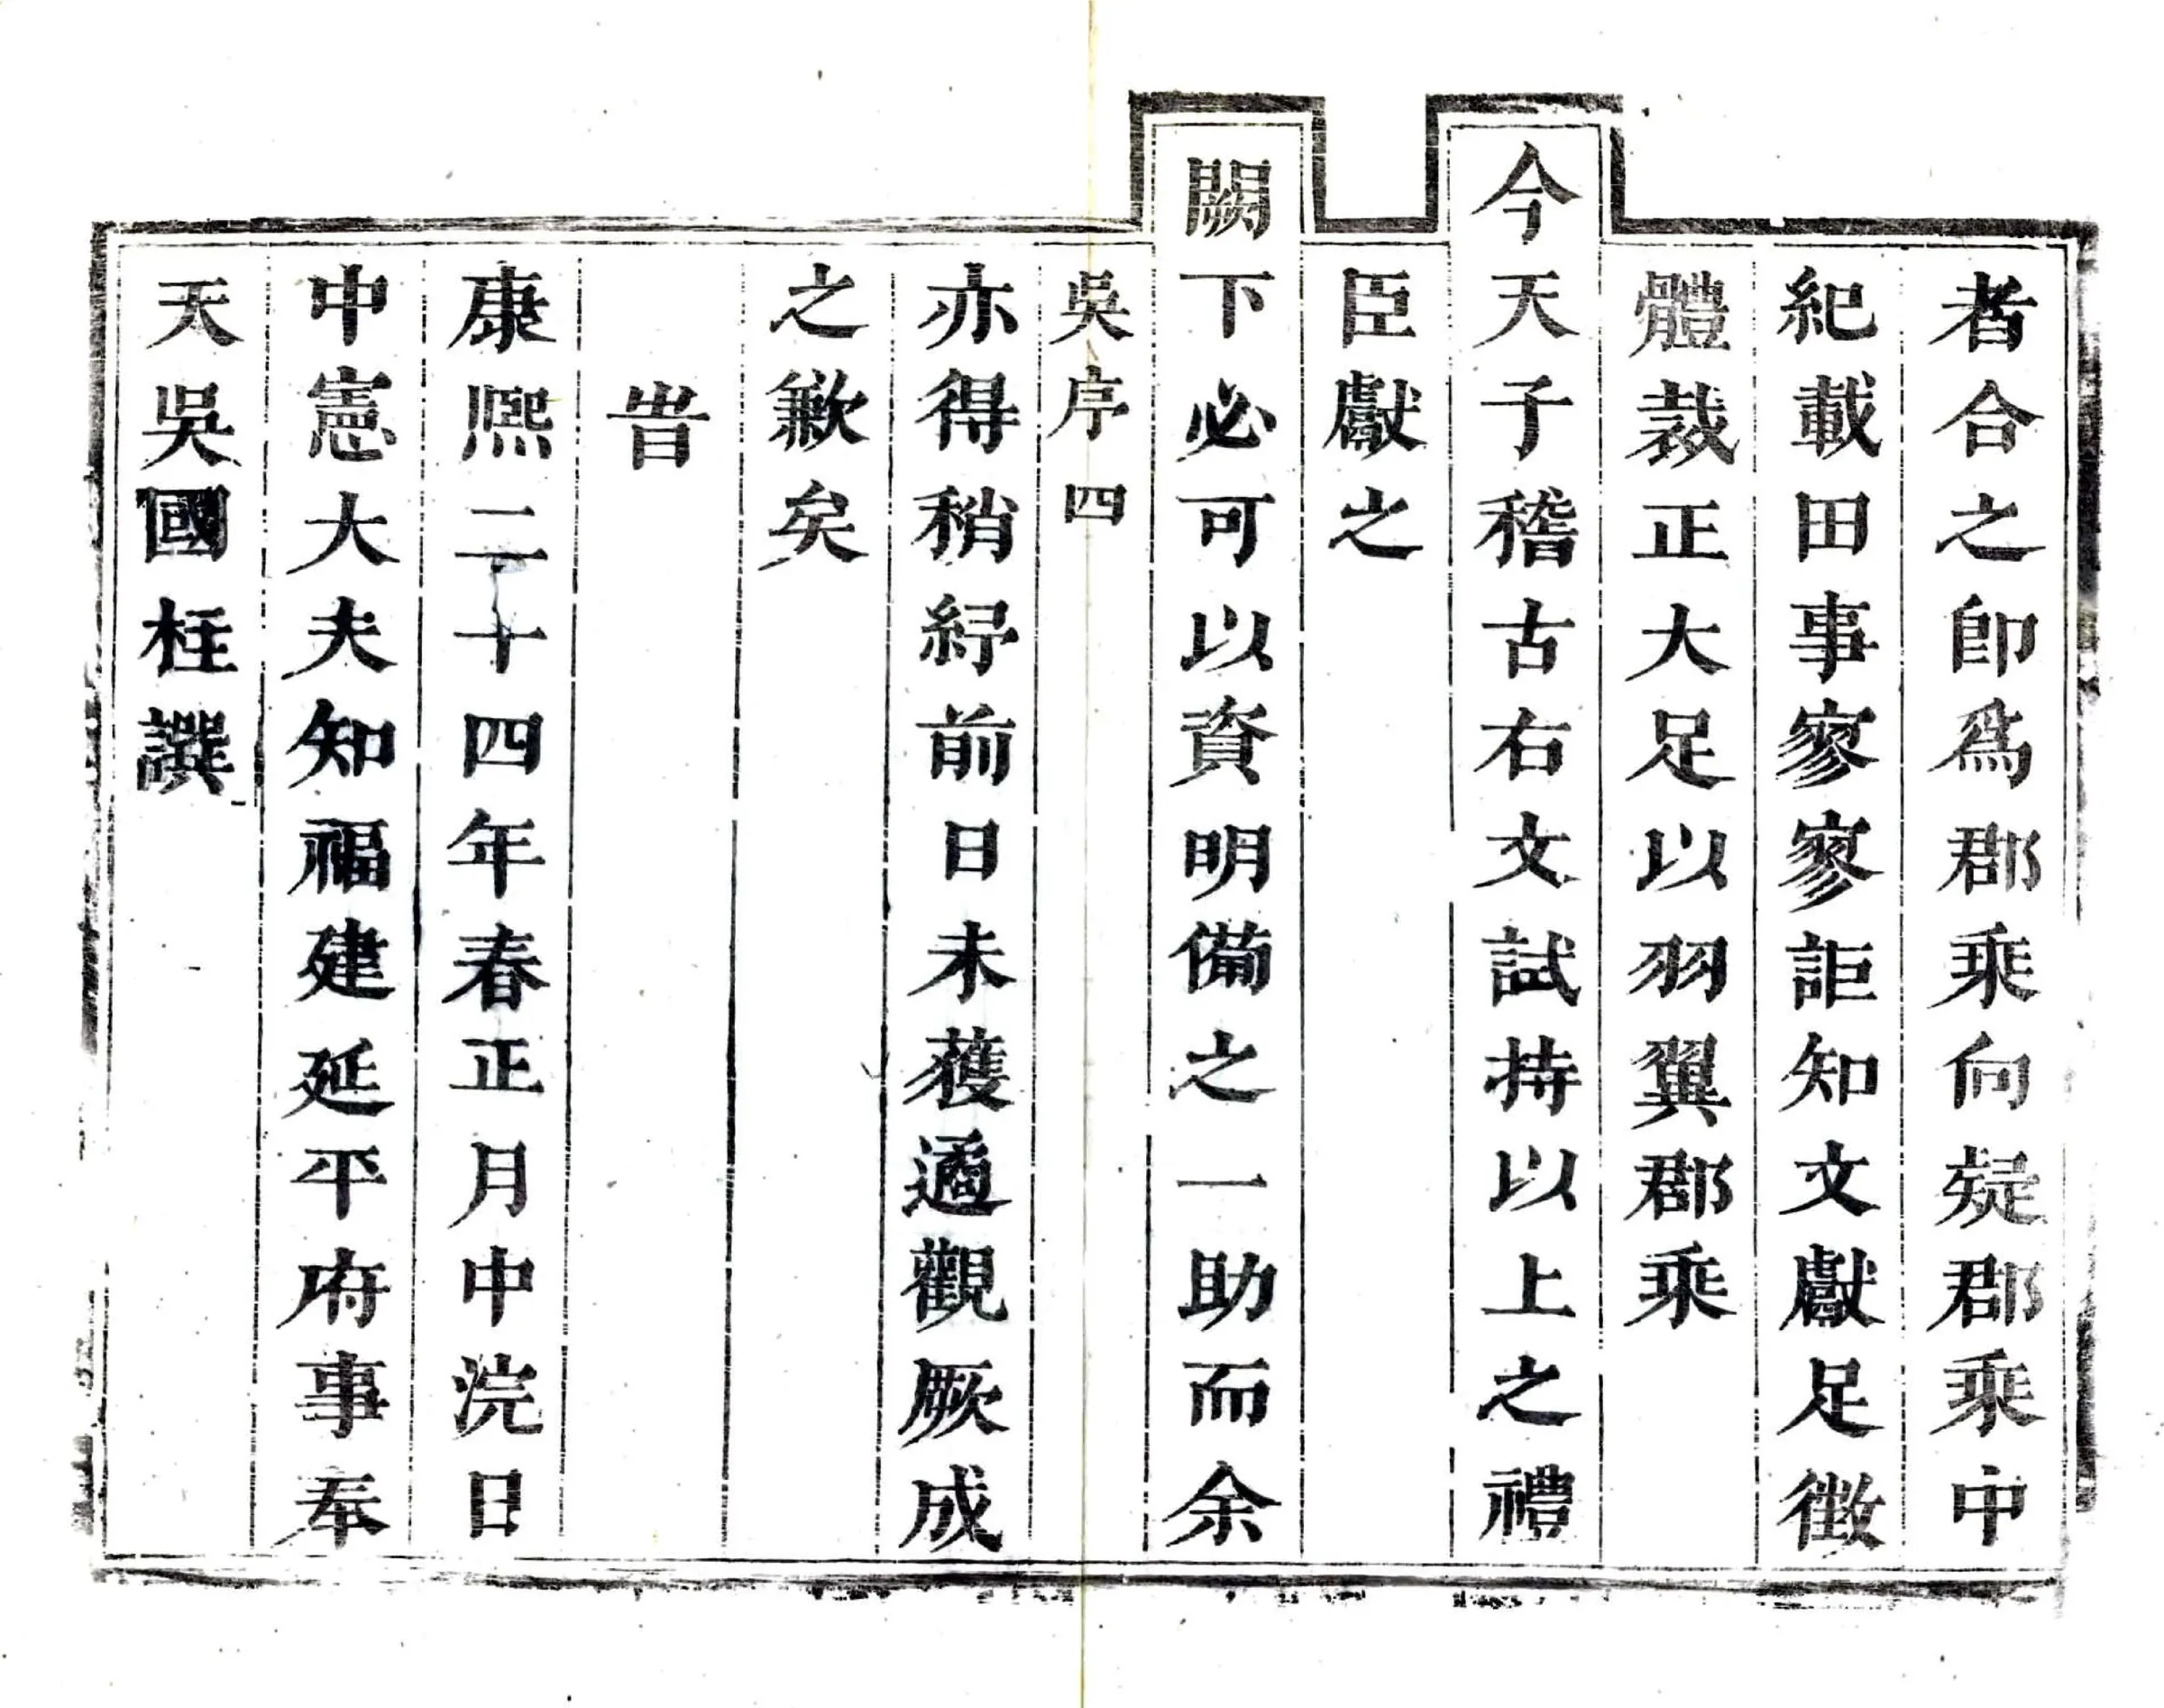 者合之卽爲郡乘向疑郡乘中
紀載田事寥寥詎知文獻足徵
體裁正大足以羽翼郡乘
今天子稽古右文試持以上之禮
臣獻之
闕下必可以資明備之一助而余
吳序 四
亦得稍紓前日未獲遹觀厥成
之歉矣
旹
康熙二十四年春正月中浣日
中憲大夫知福建延平府事奉
天吳國柱譔